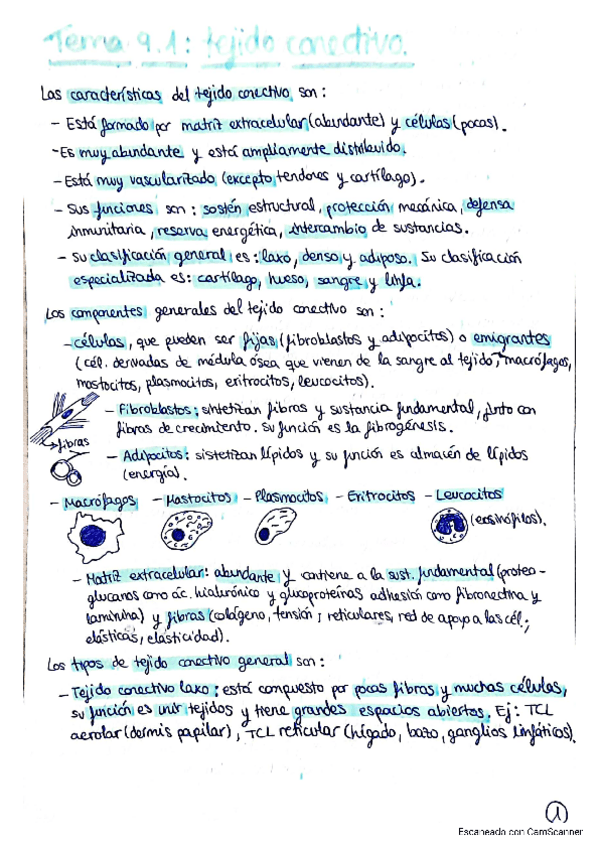 Tema 9.1: tejido conectivo.
Las características del tejido conectivo son:
- Está formado por matriz extracelular (abundante) y células (pocas).
- Es muy abundante y está ampliamente distribuido.
- Está muy vascularizado (excepto tendones y cartílago).
- Sus funciones son: sostén estructural, protección mecánica, defensa
inmunitaria, reserva energética, intercambio de sustancias.
- Su clasificación general es: laxo, denso y adiposo. Su clasificación
especializada es: cartílago, hueso, sangre y linfa.
Los componentes generales del tejido conectivo son:
- células, que pueden ser fijas (fibroblastos y adipocitos) o emigrantes
(cél. derivadas de médula ósea que vienen de la sangre al tejido, macrófagos,
mastocitos, plasmocitos, eritrocitos, leucocitos).
- Fibroblastos: sintetizan fibras y sustancia fundamental, junto con
fibras de crecimiento. su función es la fibrogénesis.
→ fibras
- Adipocitos: sistetizan lípidos y su función es almacén de lípidos
(energía).
- Macrófagos - Mastocitos - Plasmocitos - Eritrocitos - Leucocitos
(eosinófilos).
- Matriz extracelular: abundante y contiene a la sust. fundamental (proteo-
glucanos como ác. hialurónico y glucoproteínas adhesión como fibronectina y
laminina) y fibras (colágeno, tensión; reticulares, red de apoyo a las cél.;
elásticas, elasticidad).
Los tipos de tejido conectivo general son:
- Tejido conectivo laxo: está compuesto por pocas fibras y muchas células,
su función es unir tejidos y tiene grandes espacios abiertos. Ej: TCL
aerolar (dermis papilar), TCL reticular (hígado, bazo, ganglios linfáticos).
1
Escaneado con CamScanner